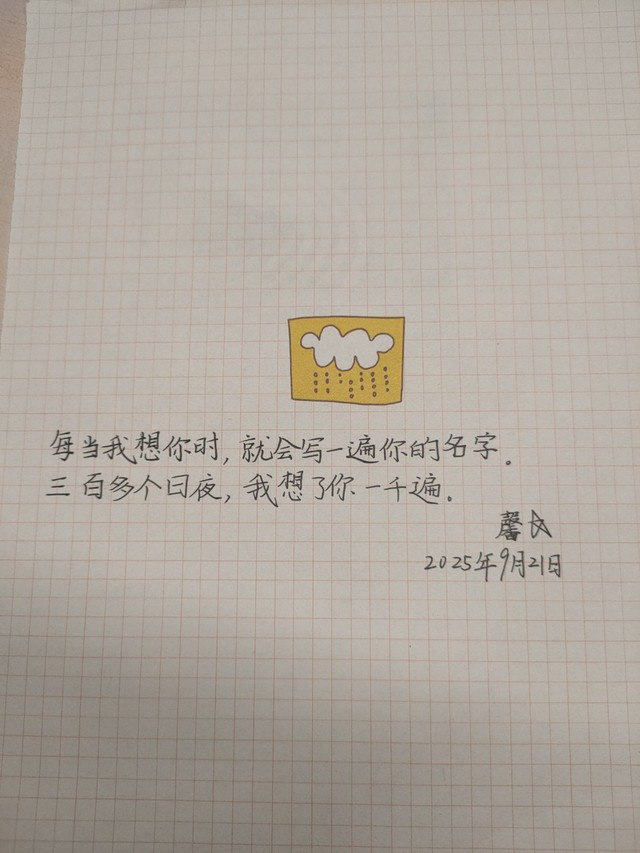 每当我想你时,就会写一遍你的名字。
三百多个日夜,我想了你一千遍。
馨
2025年9月21日